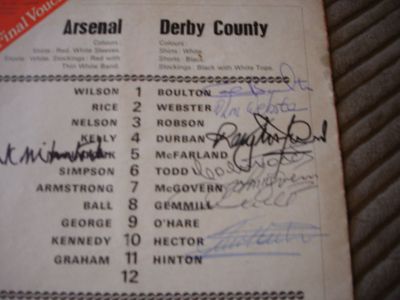 Final Vouc
Arsenal Derby County
Colours: Colours:
Shirts: Red, White Sleeves. Shirts: White.
Shorts: White. Stockings: Red with Shorts: Black.
Thin White Band. Stockings: Black with White Tops.
WILSON 1 BOULTON
RICE 2 WEBSTER
NELSON 3 ROBSON
KELLY 4 DURBAN
5 McFARLAND
SIMPSON 6 TODD
ARMSTRONG 7 McGOVERN
BALL 8 GEMMILL
GEORGE 9 O'HARE
KENNEDY 10 HECTOR
GRAHAM 11 HINTON
12